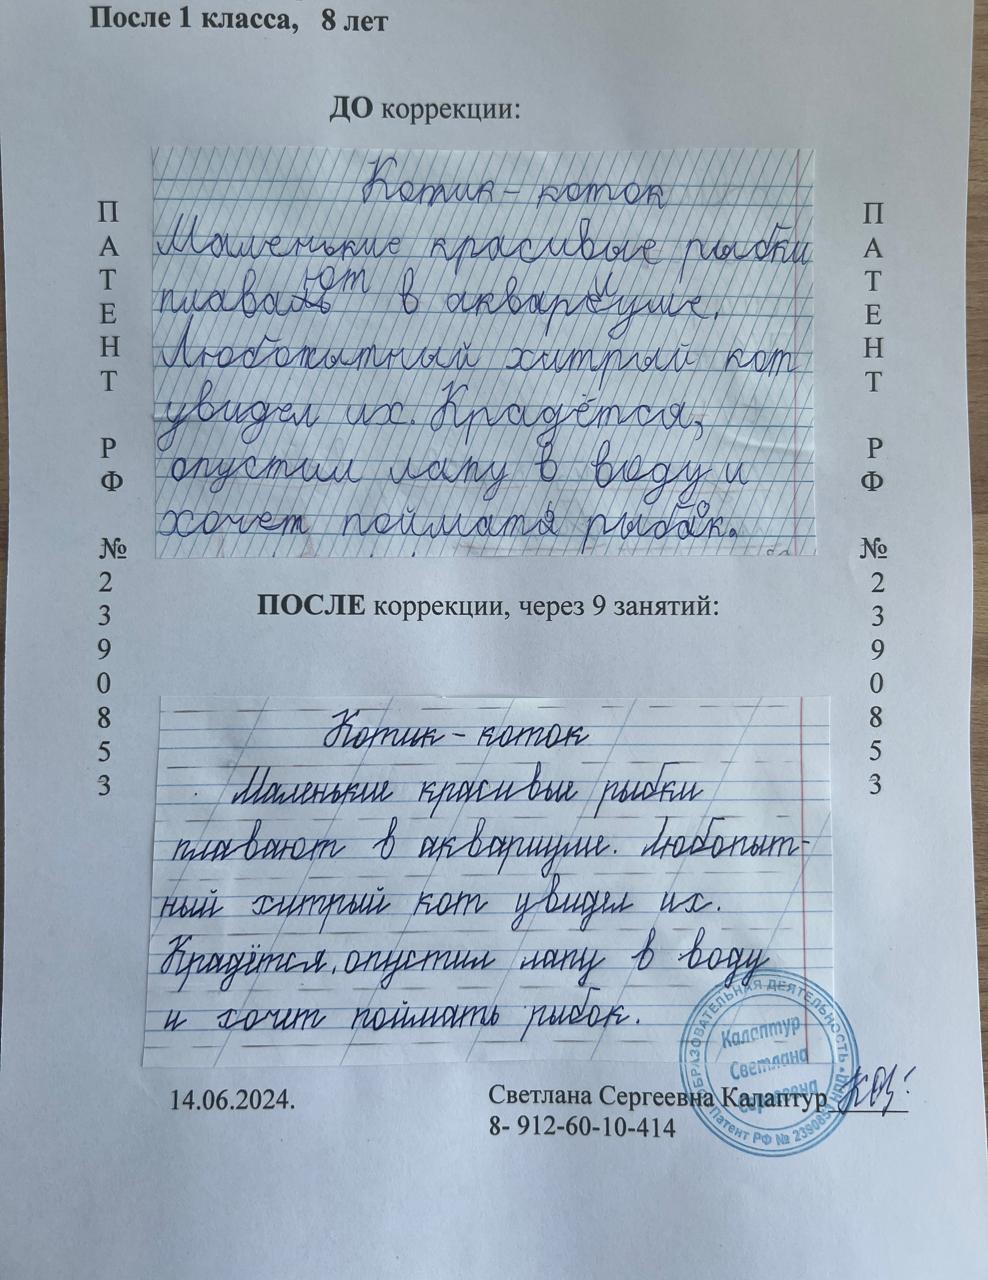 После 1 класса, 8 лет
ДО коррекции:
Котик - коток
Маленькие красивые рыбки
плавают в аквариуме.
Любопытный хитрый кот
увидел их. Крадётся,
опустил лапу в воду и
хочет поймать рыбок.
ПАТЕНТ РФ №2390853
ПАТЕНТ РФ №2390853
ПОСЛЕ коррекции, через 9 занятий:
Котик - коток
Маленькие красивые рыбки
плавают в аквариуме. Любопыт-
ный хитрый кот увидел их.
Крадётся, опустил лапу в воду
и хочет поймать рыбок.
14.06.2024.
Светлана Сергеевна Калаптур
8- 912-60-10-414
ОБРАЗОВАТЕЛЬНАЯ ДЕЯТЕЛЬНОСТЬ
Калаптур
Светлана
Сергеевна
Патент РФ № 2390853